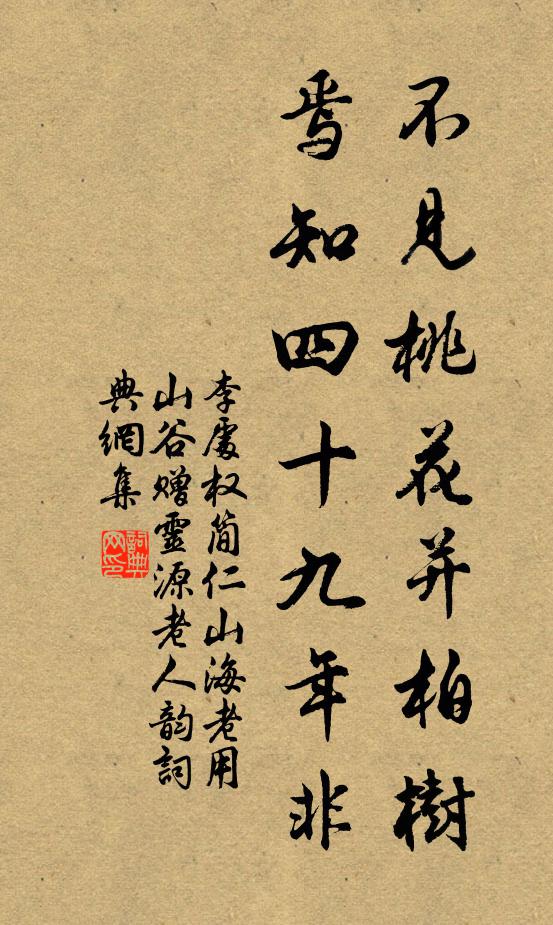 不見桃花并柏樹
焉知四十九年非
李處权简仁山海老用
山谷贈靈源老人韵詞
典網集
詞典網印